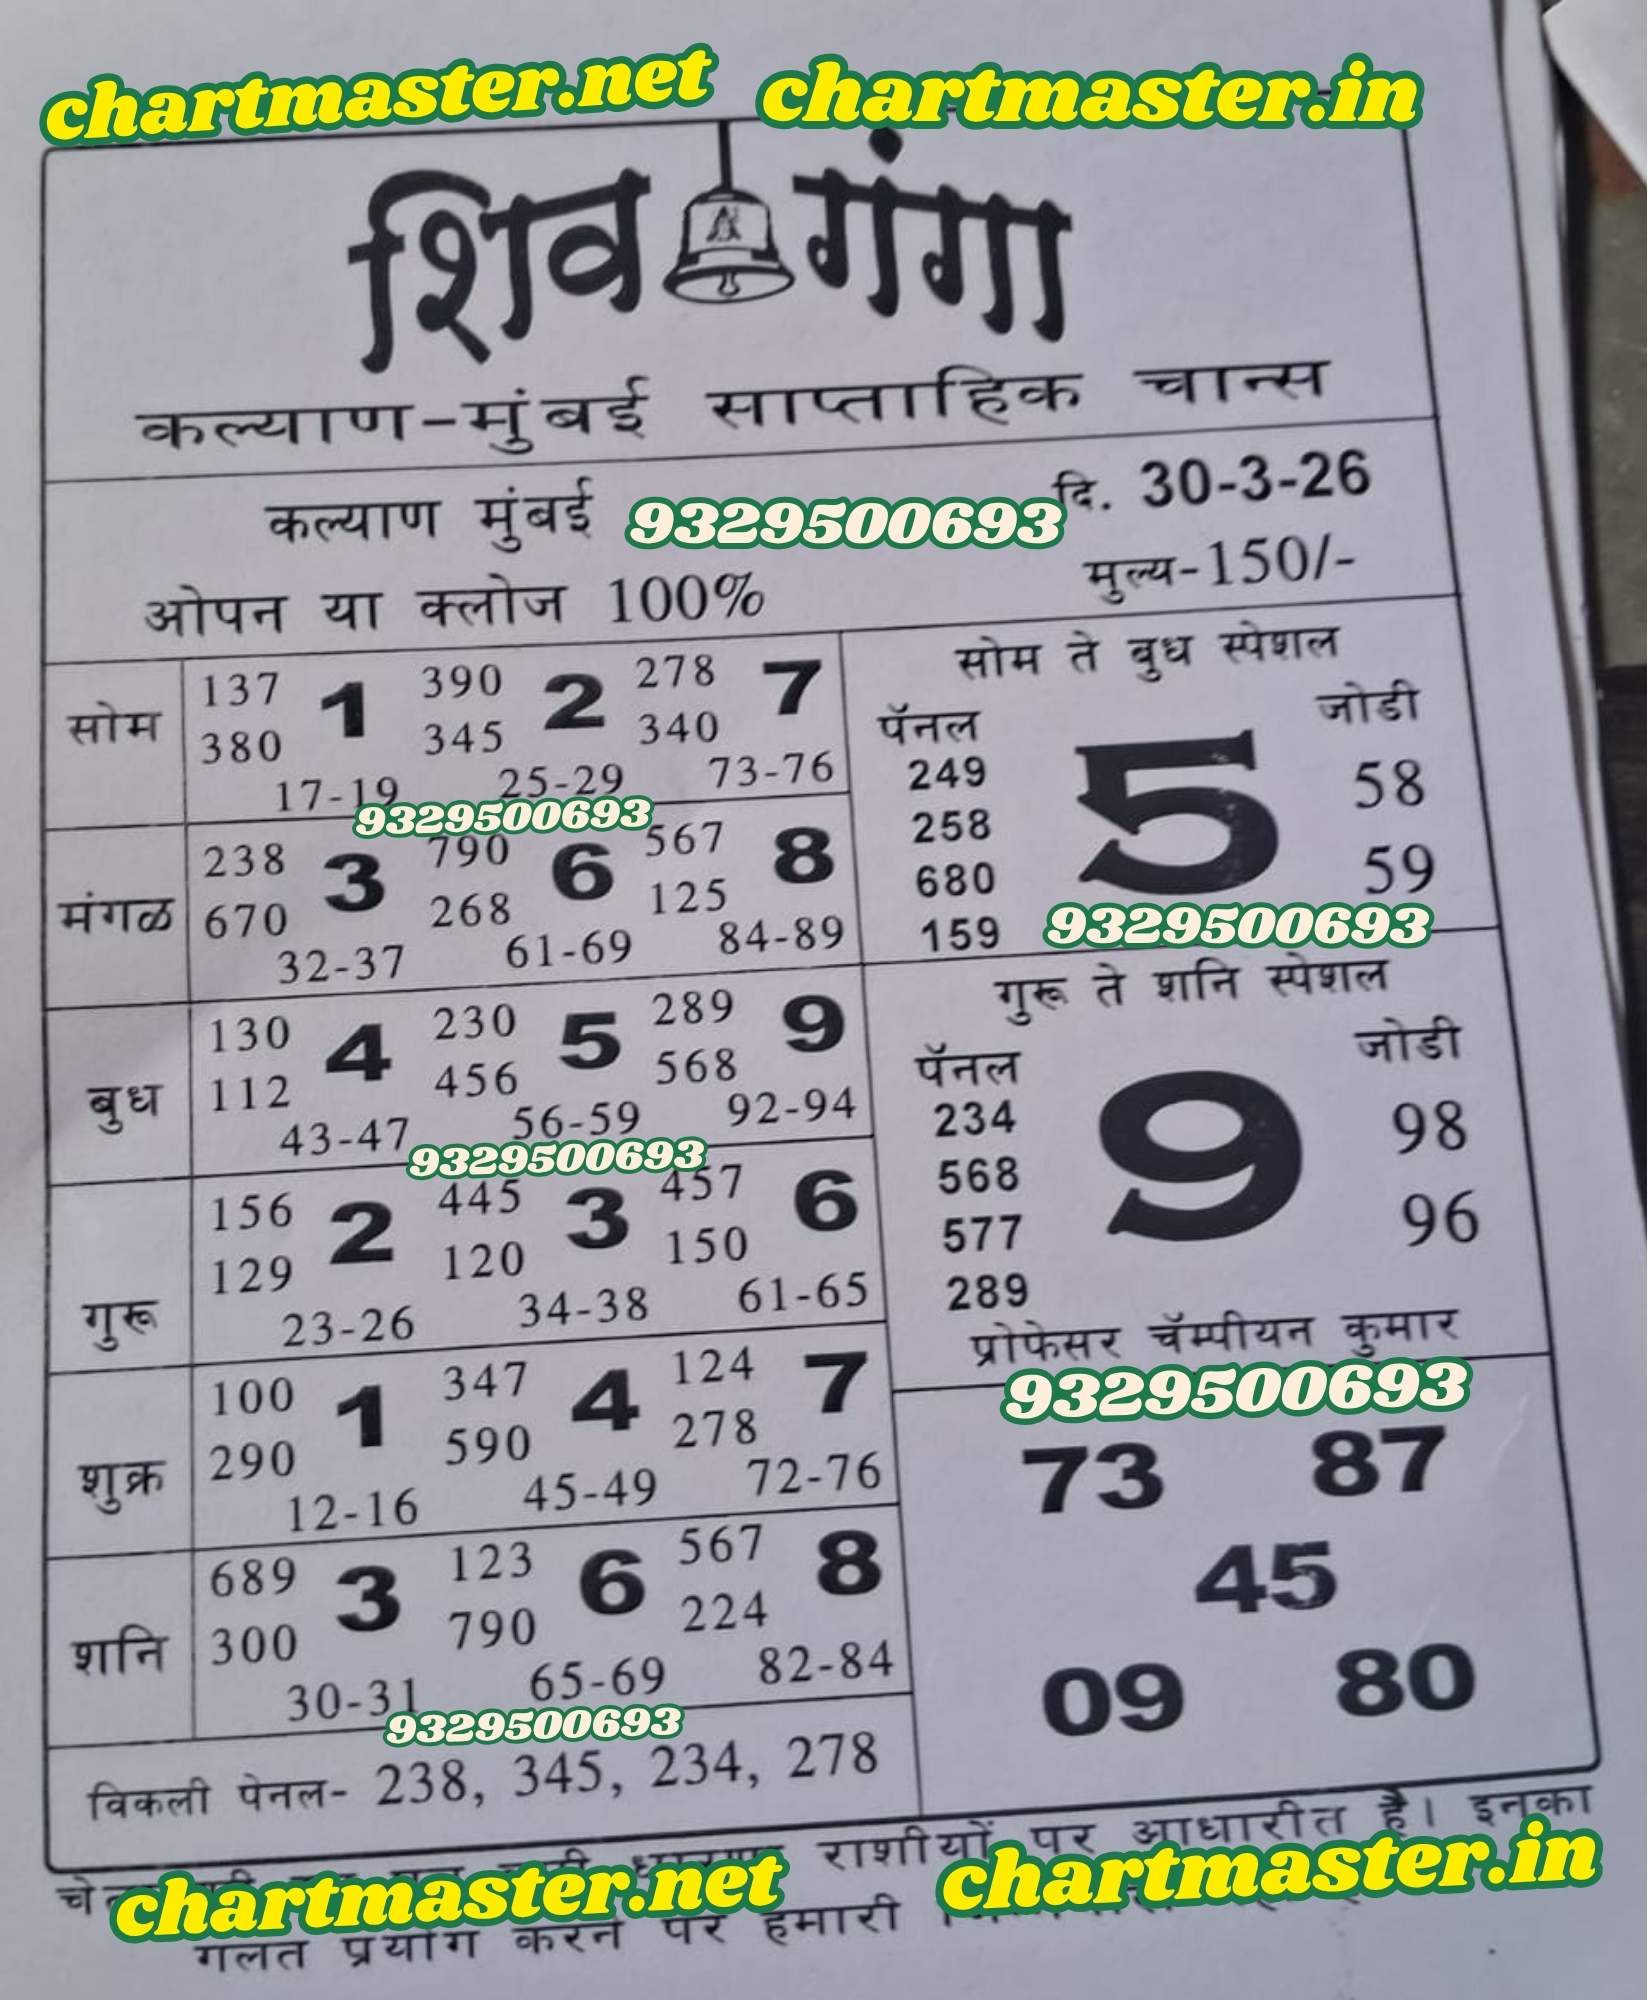 chartmaster.net chartmaster.in
शिव गंगा
कल्याण-मुंबई साप्ताहिक चान्स
कल्याण मुंबई 9329500693 दि. 30-3-26
ओपन या क्लोज 100% मुल्य-150/-
सोम
137 1 390 2 278 7
380 345 340
17-19 25-29 73-76
9329500693
मंगळ
238 3 790 6 567 8
670 268 125
32-37 61-69 84-89
बुध
130 4 230 5 289 9
112 456 568
43-47 56-59 92-94
9329500693
गुरू
156 2 445 3 457 6
129 120 150
23-26 34-38 61-65
शुक्र
100 1 347 4 124 7
290 590 278
12-16 45-49 72-76
शनि
689 3 123 6 567 8
300 790 224
30-31 65-69 82-84
9329500693
विकली पेनल- 238, 345, 234, 278
सोम ते बुध स्पेशल
पॅनल जोडी
249 5 58
258
680 59
159 9329500693
गुरू ते शनि स्पेशल
पॅनल जोडी
234 9 98
568
577 96
289
प्रोफेसर चॅम्पीयन कुमार
9329500693
73 87
45
09 80
राशीयों पर आधारीत है। इनका
chartmaster.net chartmaster.in
गलत प्रयोग करने पर हमारी